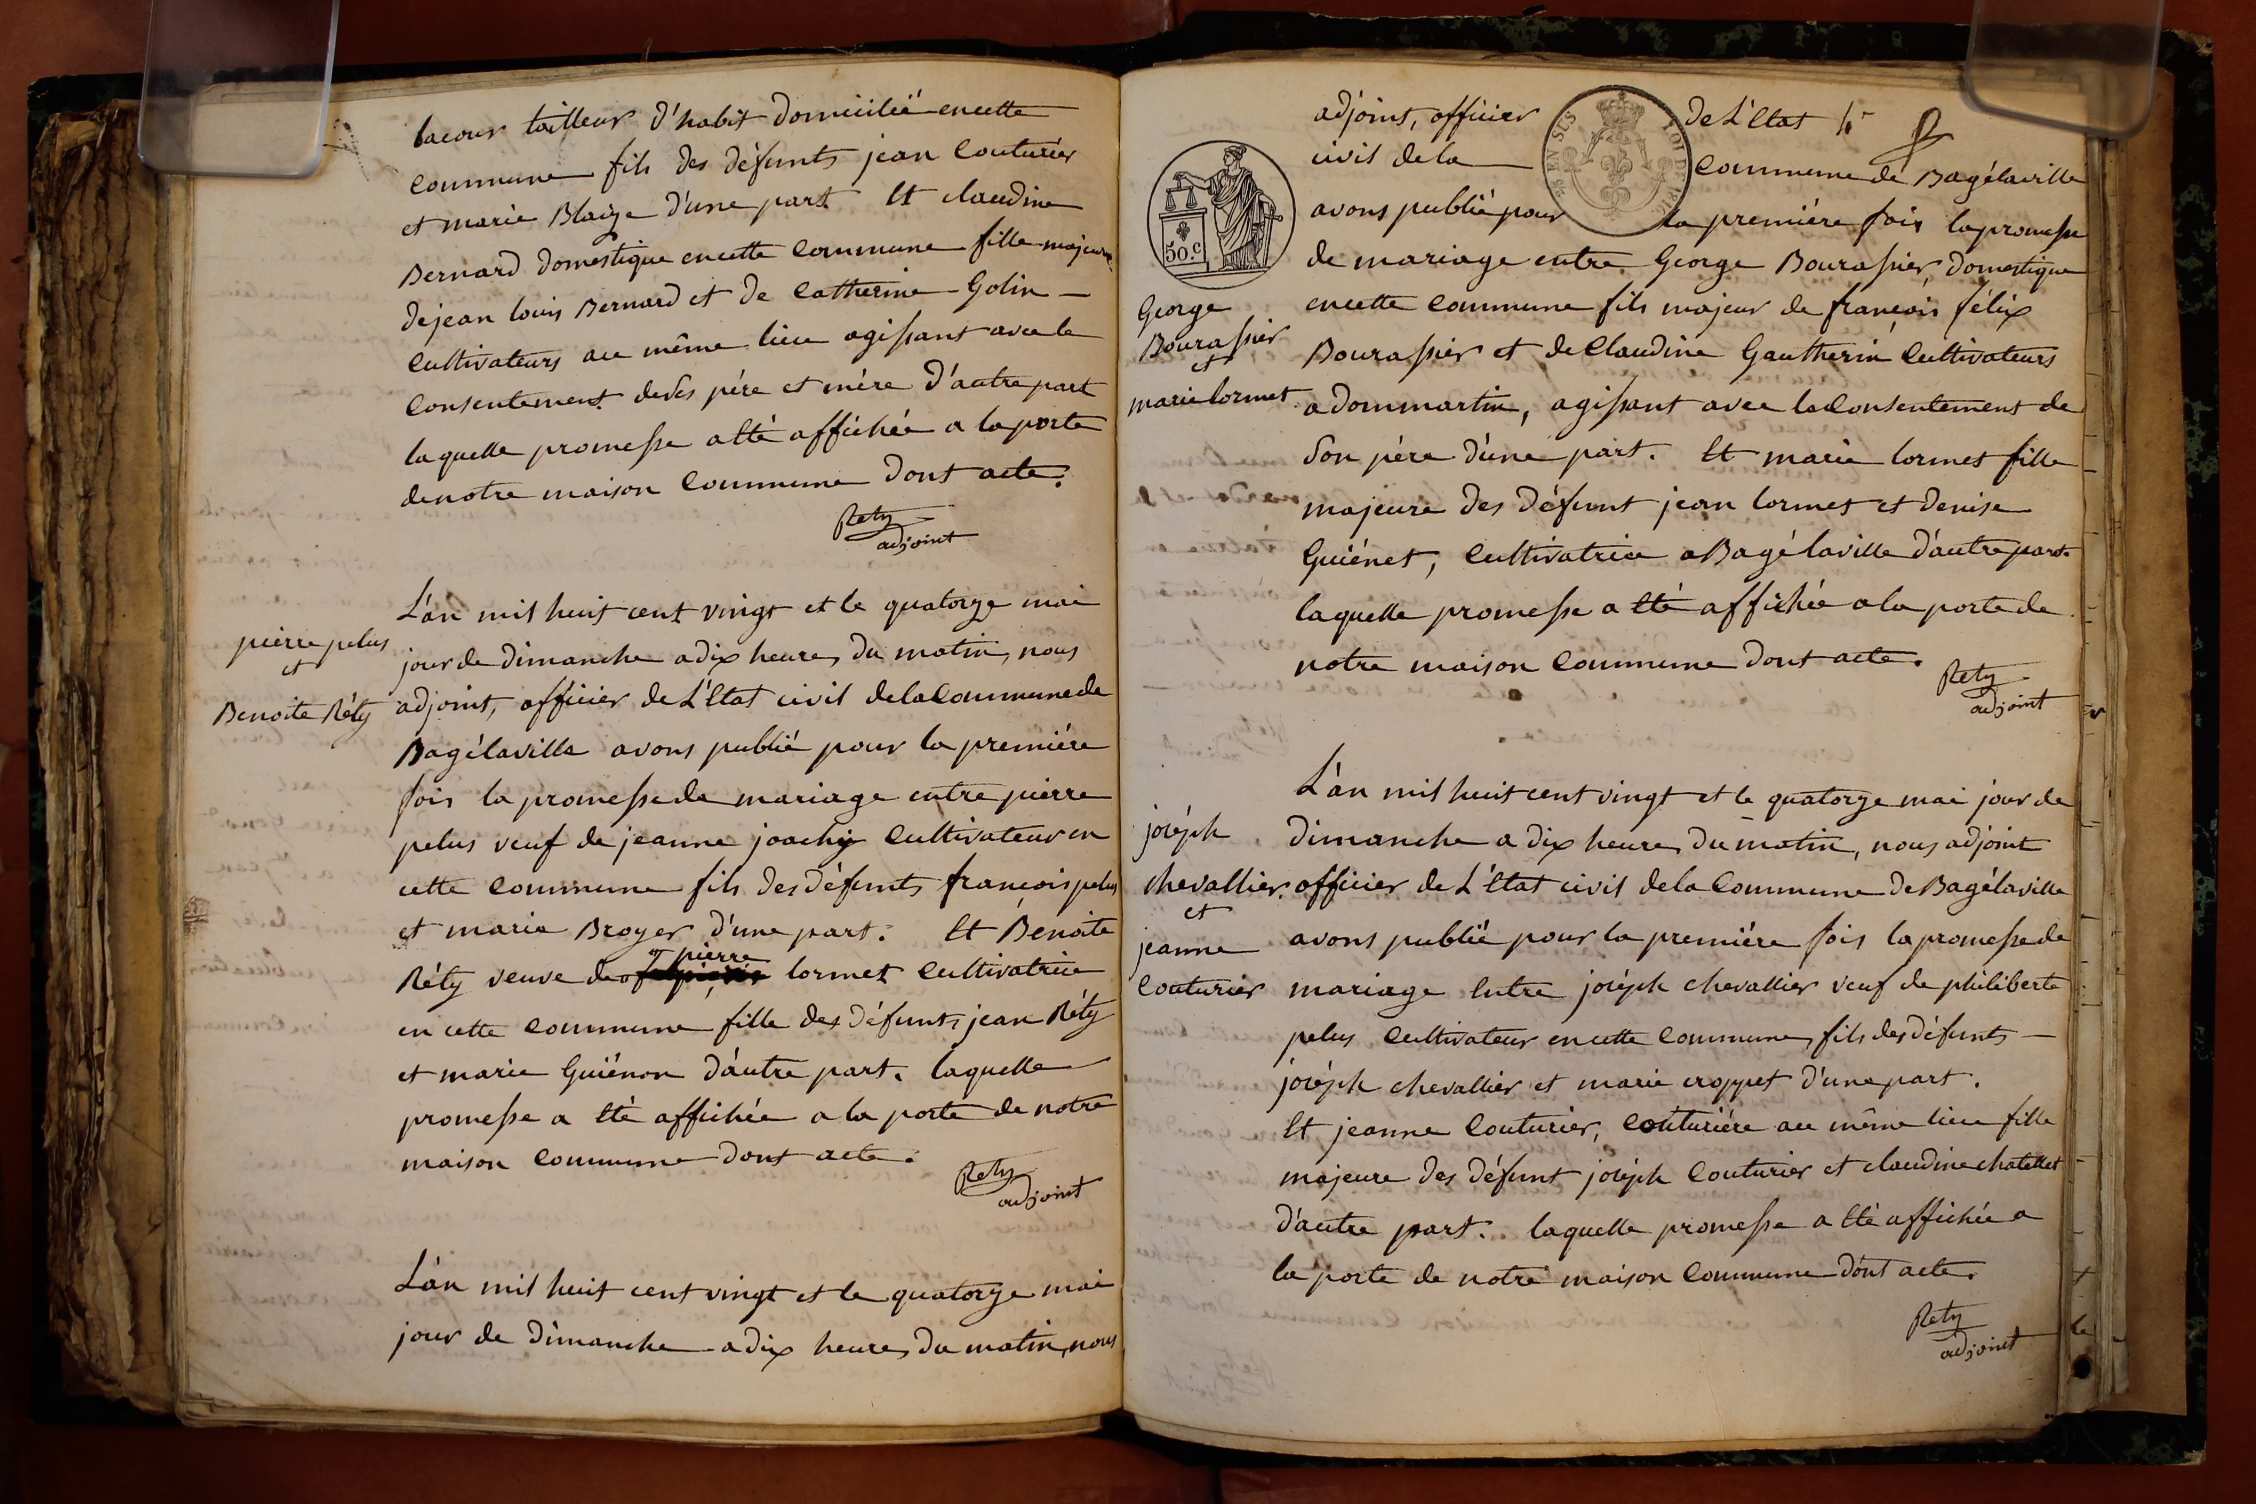 lacour tailleur d'habit domicilié en cette
commune fils des défunts jean Couturier
et marie Blaize d'une part Et claudine
Bernard domestique en cette Commune fille majeure
de jean louis Bernard et de Catherine Golin —
Cultivateurs au même lieu agissant avec le
Consentement de ses pére et mére d'autre part
laquelle promesse a Eté affichée a la porte
de notre maison Commune dont acte.
Rety
adjoint
pierre pelus
et
Benoite Réty
L'an mil huit cent vingt et le quatorze mai
jour de dimanche a dix heures du matin, nous
adjoint, officier de L'Etat civil de la Commune de
Bagélaville avons publié pour la premiére
fois la promesse de mariage entre pierre
pelus veuf de jeanne joachy Cultivateur en
cette Commune fils des défunts françois pelus
et marie Broyer d'une part. Et Benoite
pierre
Réty veuve de lormet Cultivatrice
en cette Commune fille des défunts jean Réty
et marie Guiénon d'autre part. laquelle
promesse a Eté affichée a la porte de notre
maison Commune dont acte.
Rety
adjoint
L'an mil huit cent vingt et le quatorze mai
jour de dimanche a dix heures du matin, nous
adjoint, officier de L'Etat
civil de la — Commune de Bagélaville
avons publié pour la premiére fois la promesse
de mariage entre George Bourassier, domestique
en cette Commune fils majeur de françois félix
Bourassier et de Claudine Gautherin Cultivateurs
a dommartin, agissant avec le Consentement de
son pére d'une part. Et marie lormet fille
majeure des défunt jean lormet et denise
Guiénet, Cultivatrice a Bagélaville d'autre part.
laquelle promesse a Eté affichée a la porte de
notre maison Commune dont acte.
Rety
adjoint
50.c
George
Bourassier
et
marie lormet
joséph
chevallier
et
jeanne
Couturier
L'an mil huit cent vingt et le quatorze mai jour de
dimanche a dix heures du matin, nous adjoint
officier de L'Etat civil de la Commune de Bagélaville
avons publié pour la premiére fois la promesse de
mariage Entre joséph chevallier veuf de philiberte
pelus Cultivateur en cette Commune, fils des défunts —
joséph chevallier et marie croppet d'une part.
Et jeanne Couturier, Couturiére au même lieu fille
majeure des défunt joséph Couturier et claudine chatellet
d'autre part. laquelle promesse a Eté affichée a
la porte de notre maison Commune dont acte.
Rety
adjoint